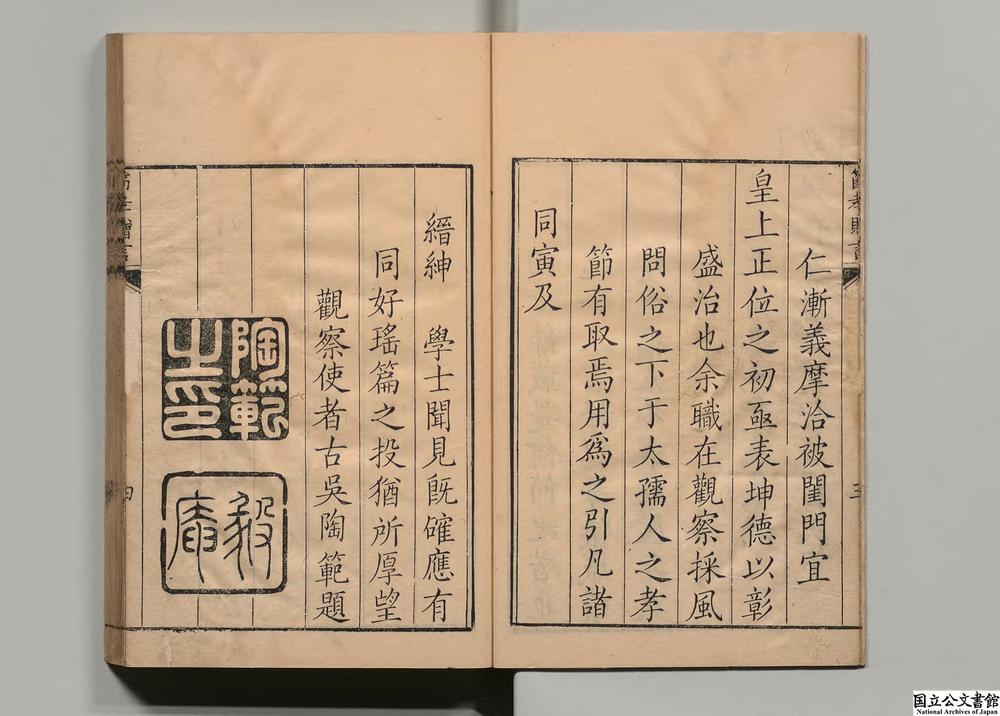 仁漸義摩洽被閨門宜
皇上正位之初亟表坤德以彰
盛治也余職在觀察採風
問俗之下于太孺人之孝
節有取焉用爲之引凡諸
同寅及
縉紳 學士聞見旣確應有
同好瑤篇之投猶所厚望
觀察使者古吳陶範題
陶範
之印
毅
菴
四
国立公文書館
National Archives of Japan